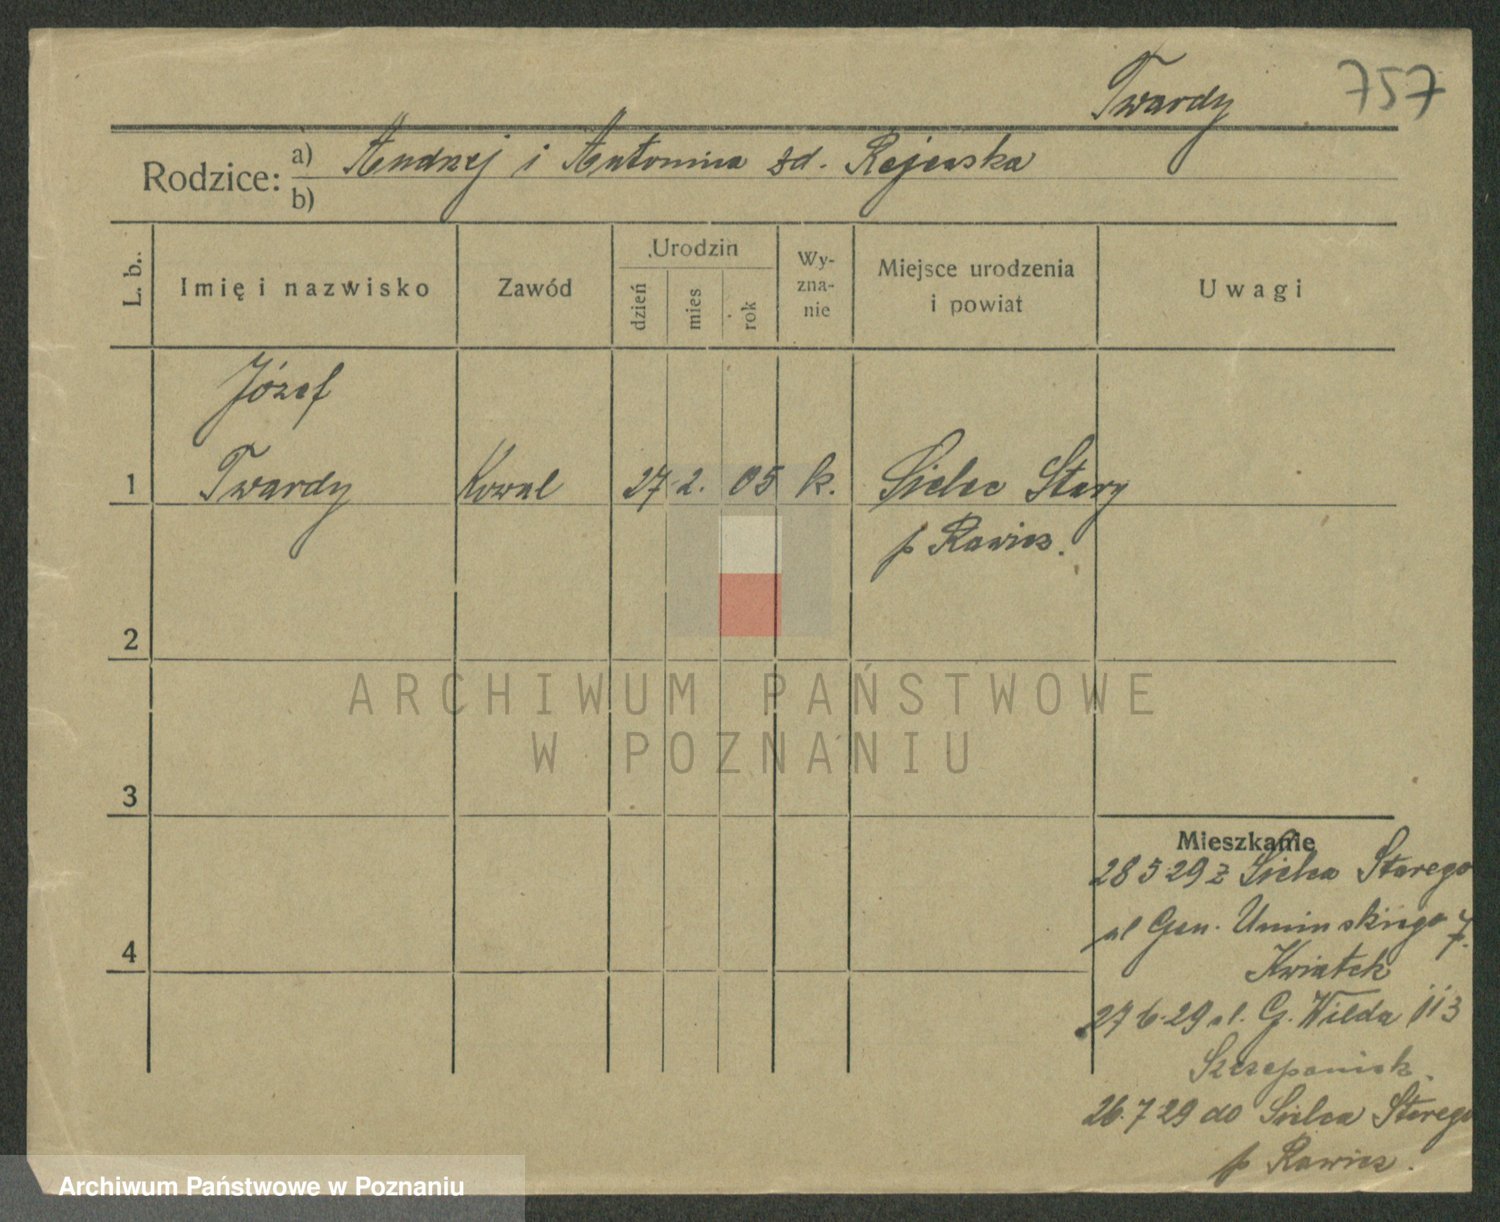 Twardy 757
Rodzice: a) Andrzej i Antonina zd. Rejewska
b)
L. b.. Imię i nazwisko Zawód Urodzin dzień mies rok Wyznanie Miejsce urodzenia i powiat Uwagi
Józef
1 Twardy Kowal 27 2. 05 k. Sielec Stary
p Rawicz.
2
ARCHIWUM PAŃSTWOWE
W POZNANIU
3
Mieszkanie
28 5 29 z Sielca Starego
ul Gen. Uminskiego 7
4
Kwiatek
27 6 29 ul. G. Wilda 113
Szczepaniak.
26.7 29 do Sielca Starego
p Rawicz.
Archiwum Państwowe w Poznaniu